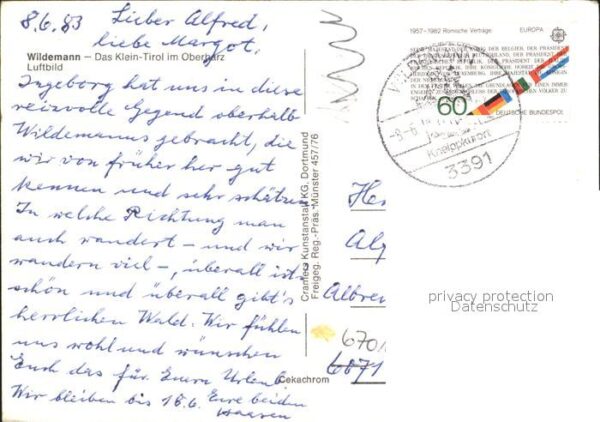 8.6.83 Lieber Alfred,
liebe Margot,
Wildemann – Das Klein-Tirol im Oberharz
Luftbild
Ingeborg hat uns in diese
reizvolle Gegend oberhalb
Wildemanns gebracht, die
wir von früher her gut
kennen und sehr schätzen.
In welche Richtung man
auch wandert – und wir
wandern viel –, überall ist's
schön und überall gibt's
herrlichen Wald. Wir fühlen
uns wohl und wünschen
Euch das für Euren Urlaub.
Wir bleiben bis 18.6. Eure beiden
Cekachrom
Cramers Kunstanstalt KG, Dortmund
Freigeg. Reg.-Präs. Münster 457/76
1957-1982 Römische Verträge EUROPA
60
DEUTSCHE BUNDESPOST
Kneippkurort
3391
He
Al
Albre
670
6871
privacy protection
Datenschutz